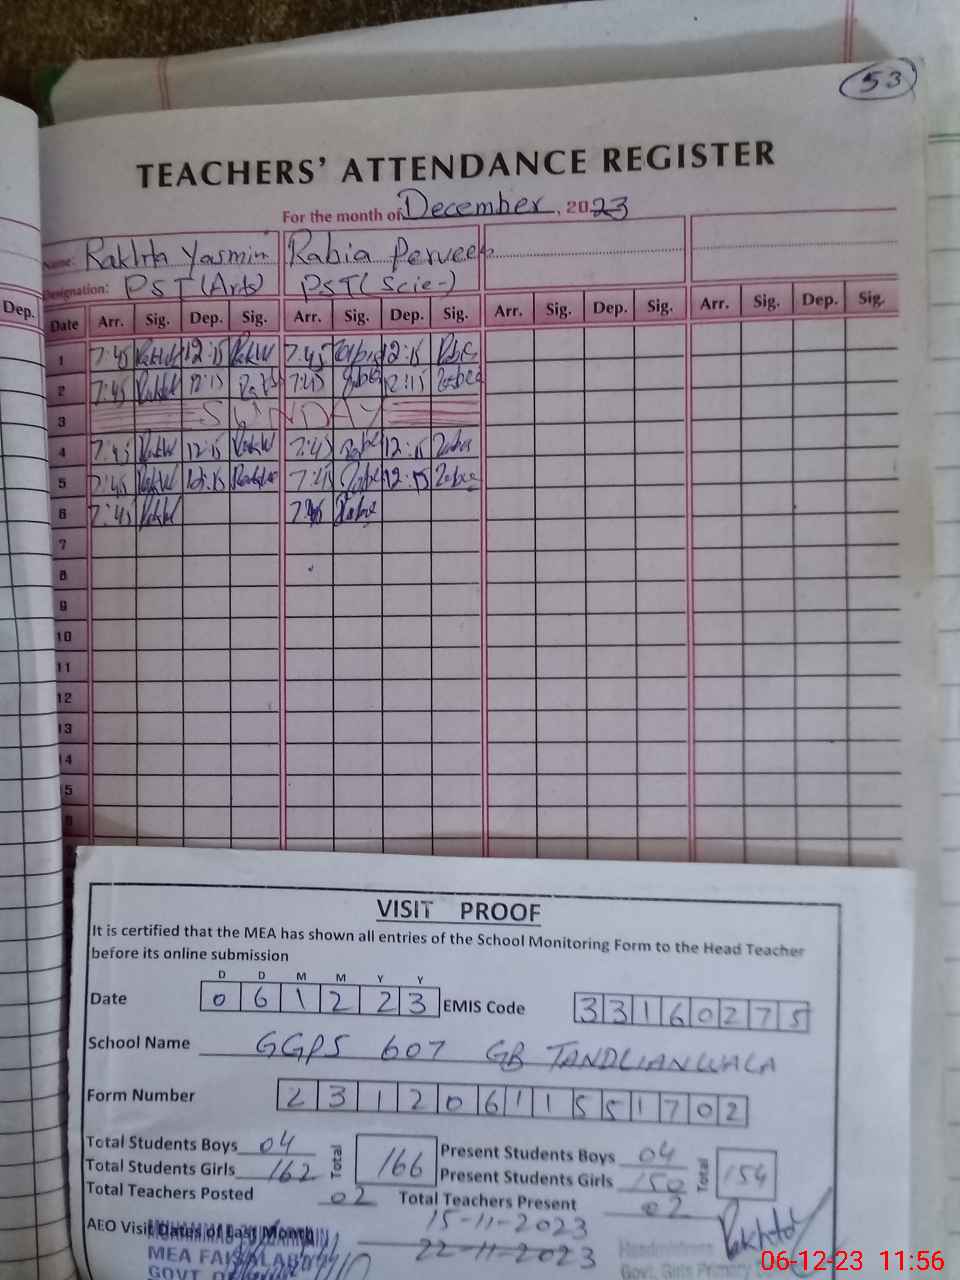 53
TEACHERS' ATTENDANCE REGISTER
For the month of December, 2023
Name: Yasmin Rabia Perveen
Designation: PST (Arts) PST (Scie-)
Dep.
Date Arr. Sig. Dep. Sig. Arr. Sig. Dep. Sig. Arr. Sig. Dep. Sig. Arr. Sig. Dep. Sig.
1 7:45 12:15 7:45 12:15
2 7:45 12:15 7:45 12:15
3 SUNDAY
4 7:45 12:15 7:45 12:15
5 7:45 12:15 7:45 12:15
6 7:45 7:45
7
8
9
10
11
12
13
14
5
VISIT PROOF
It is certified that the MEA has shown all entries of the School Monitoring Form to the Head Teacher
before its online submission
D D M M Y Y
Date 0 6 1 2 2 3 EMIS Code 3 3 1 6 0 2 7 5
School Name GGPS 607 GB TANDLIANWALA
Form Number 2 3 1 2 0 6 1 1 5 5 1 7 0 2
Total Students Boys 04 Total 166 Present Students Boys 04 Total 154
Total Students Girls 162 Present Students Girls 150
Total Teachers Posted 02 Total Teachers Present 02
AEO Visit Dates of Last Month 15-11-2023
22-11-2023
MEA FAISALABAD
GOVT. OF
Govt. Girls Primary
06-12-23 11:56